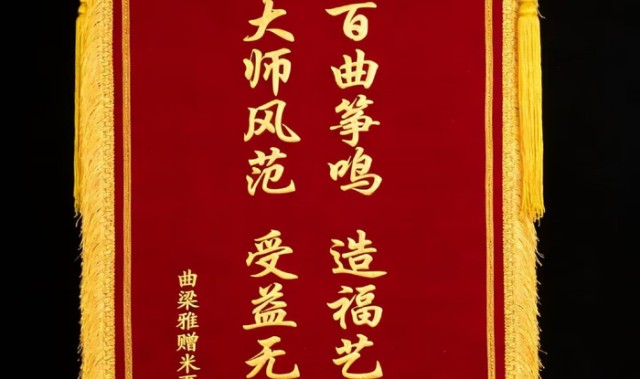 百曲筝鸣 造福艺
大师风范 受益无
曲梁雅赠米